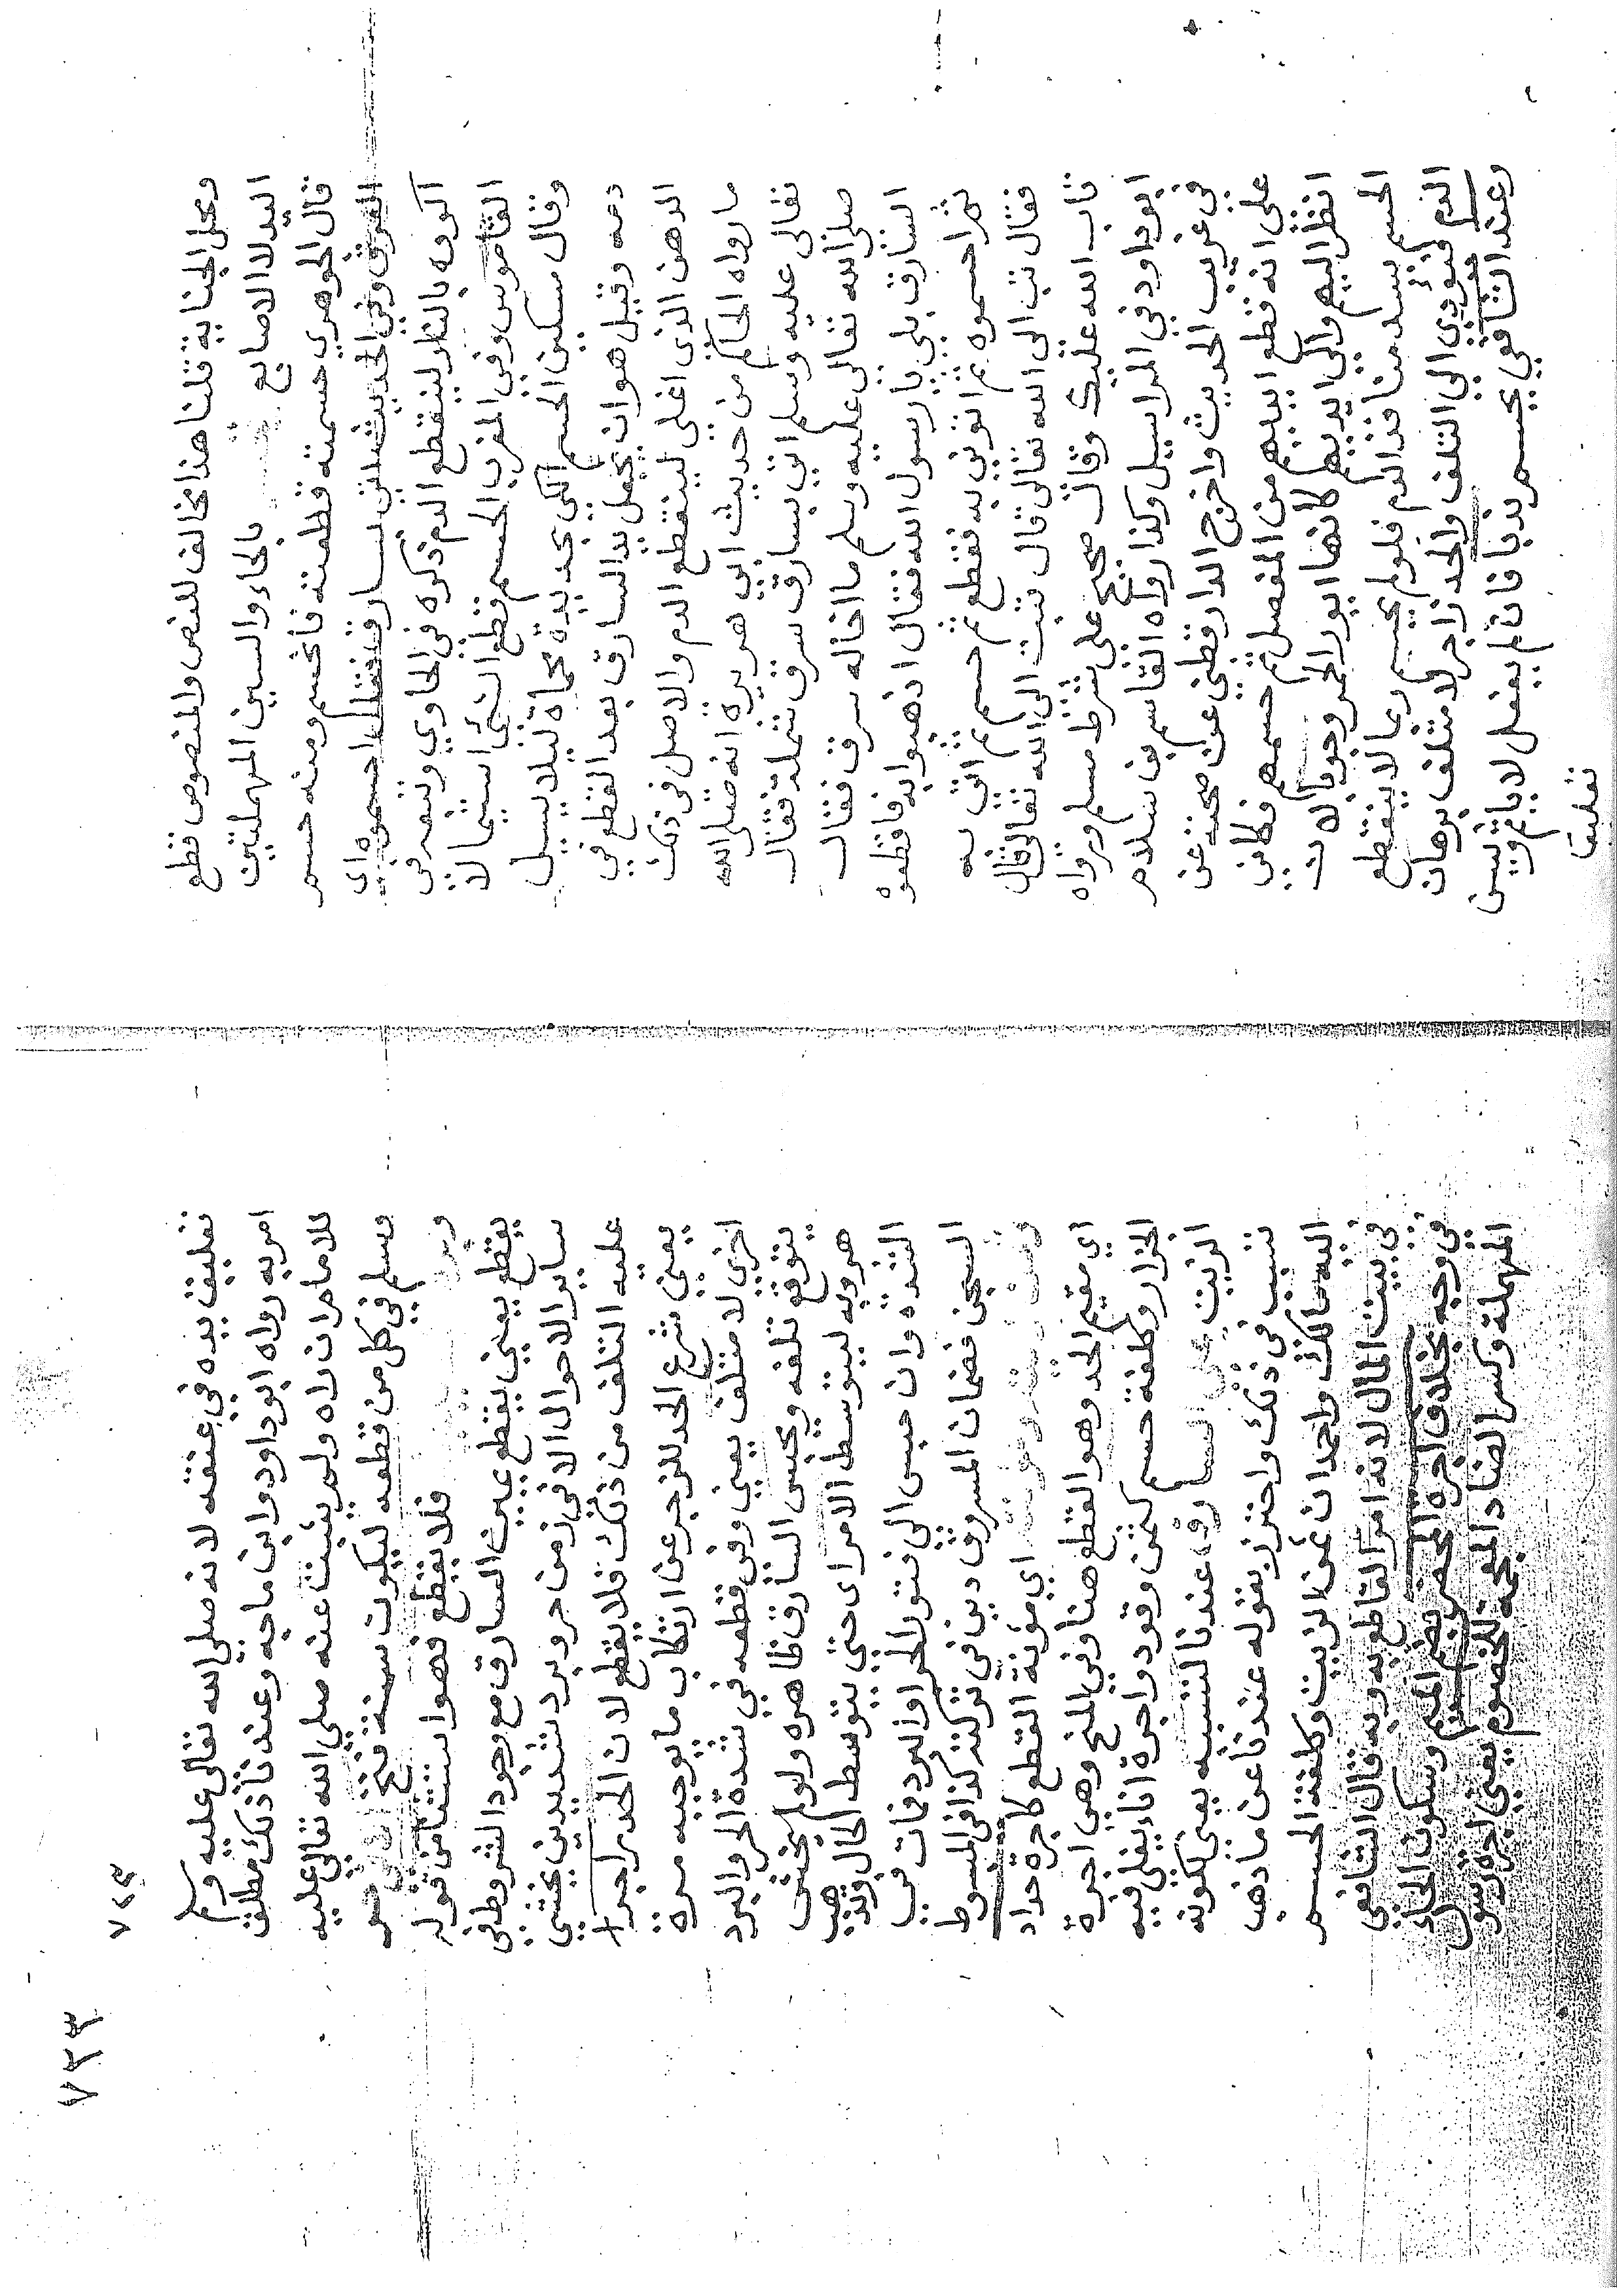 ومحل الجناية قلنا هذا مخالف للنص والمنصوص قطع
اليد لا الاصابع بالحاء والسين المهملتين
قال الجوهري حسمته قطعته فانحسم ومنه حسم
العرق وفي الحديث اتي بسارق فقال احسموه اي
اكووه بالنار لينقطع الدم ذكره في الحاوي وتبعه في
القاموس وفي المغرب الحسم قطع الشئ استيصالا
وقال سكين الحسم الكي بحديدة محماة ليلا يسيل
دمه وقيل هو ان يجعل يد السارق بعد القطع في
الدهن الذي اغلي لينقطع الدم والاصل في ذلك
ما رواه الحاكم من حديث ابي هريرة انه صلى الله
تعالى عليه وسلم اتي بسارق سرق شملة فقال
صلى الله تعالى عليه وسلم ما اخاله سرق فقال
السارق بلى يا رسول الله فقال اذهبوا به فاقطعوه
ثم احسموه ثم ائتوني به فقطع ثم حسم ثم اتي به
فقال تب الى الله تعالى قال تبت الى الله تعالى قال
تاب الله عليك وقال صحيح على شرط مسلم ورواه
ابو داود في المراسيل وكذا رواه القاسم بن سلام
في غريب الحديث واخرج الدارقطني عن حجية عن
علي انه قطع ايديهم من المفصل ثم حسمهم فكاني
انظر اليهم والى ايديهم كانها ايور الحمر وجوبا لان
الحسم يسد منافذ الدم فلو لم يحسم ربما لا ينقطع
الدم فيؤدي الى التلف والحد زاجر لا متلف برهان
وعند الشافعي يحسم ندبا فان لم يفعل لا ياثم ويسن
تعليق
٧٢٣
تعليق يده في عنقه لانه صلى الله تعالى عليه وسلم
امر به رواه ابو داود وابن ماجه وعندنا ذلك مطلق
للامام ان راه ولم يثبت عنه صلى الله تعالى عليه
وسلم في كل من قطعه ليكون سنة فتح
فلا يقطع فهو استثنا من قوله
يقطع يعني يقطع يمين السارق مع وجود الشروط في
ساير الاحوال الا في زمن حر وبرد شديدين يخشى
عليه التلف من ذلك فلا يقطع لان الحد زاجر لا
يعني شرع الحد للزجر عن ارتكاب ما يوجبه مرة
اخرى لا متلف يعني وفي قطعه في شدة الحر والبرد
يتوقع تلفه ويحبس السارق ظاهره ولو لم يخش
هروبه ليتوسط الامر اي حتى يتوسط الحال ويذهب
الشدة وان حبس الى فتور الحر او البرد فمات في
السجن فضمان المسروق دين في تركته كذا في المبسوط
اي مؤنة القطع كاجرة حداد
اي مقيم الحد وهو القطع هنا وفي المنح وهي اجرة
الجزار وكلفة حسم كثمن وقود واجرة اناء يغلى فيه
الزيت على السارق عندنا لتسببه يعني لكونه
تسبب في ذلك واحترز بقوله عندنا عن ما ذهب
اليه مالك واحمد ان ثمن الزيت وكلفة الحسم
في بيت المال لانه امر القاطع به وبه قال الشافعي
في وجه بخلاف اجرة المحضر بضم الميم وسكون الحاء
المهملة وكسر الضاد المعجمة للخصوم يعني اجرة رسول